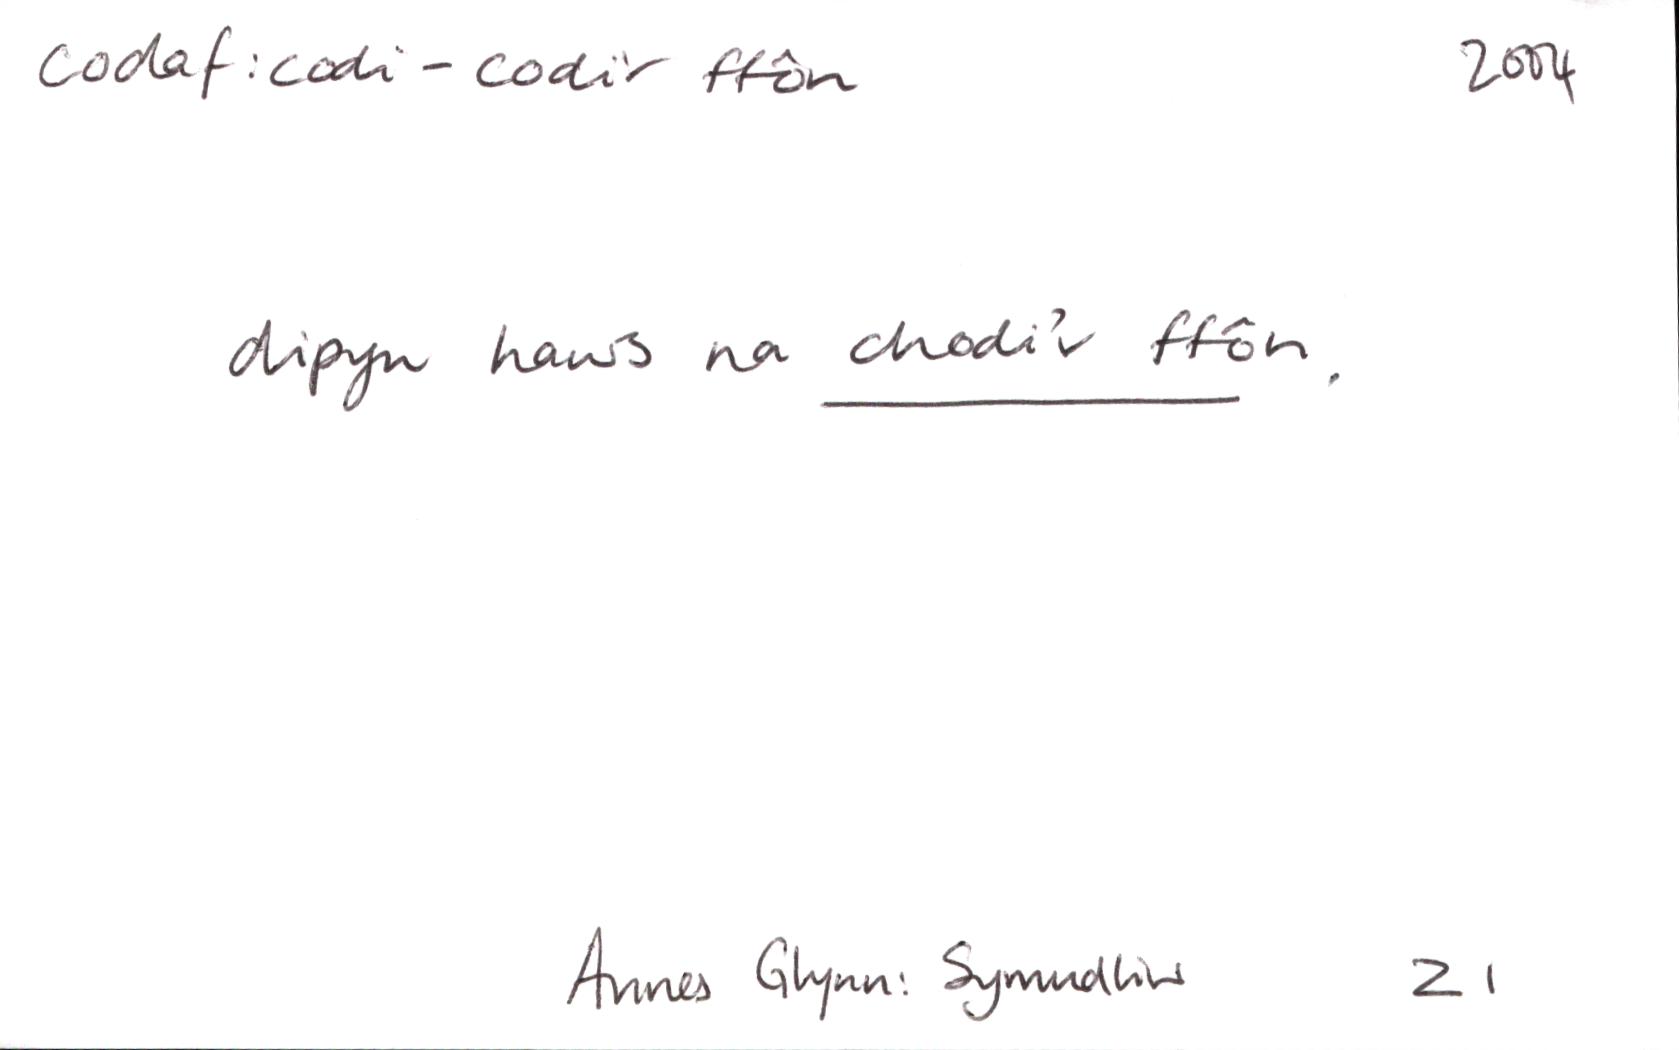 codaf: codi - codi'r ffôn 2004
dipyn haws na chodi'r ffôn.
Annes Glynn: Symudliw 21